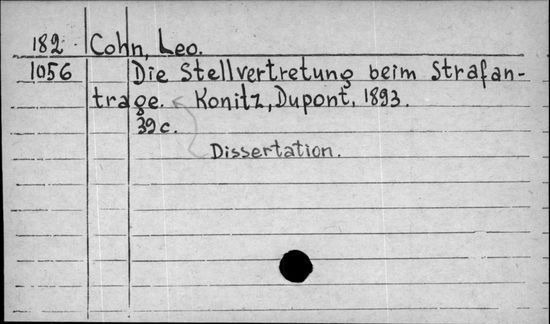 182 Cohn, Leo.
1056 Die Stellvertretung beim Strafan-
trage. Konitz, Dupont, 1893.
39c.
Dissertation.